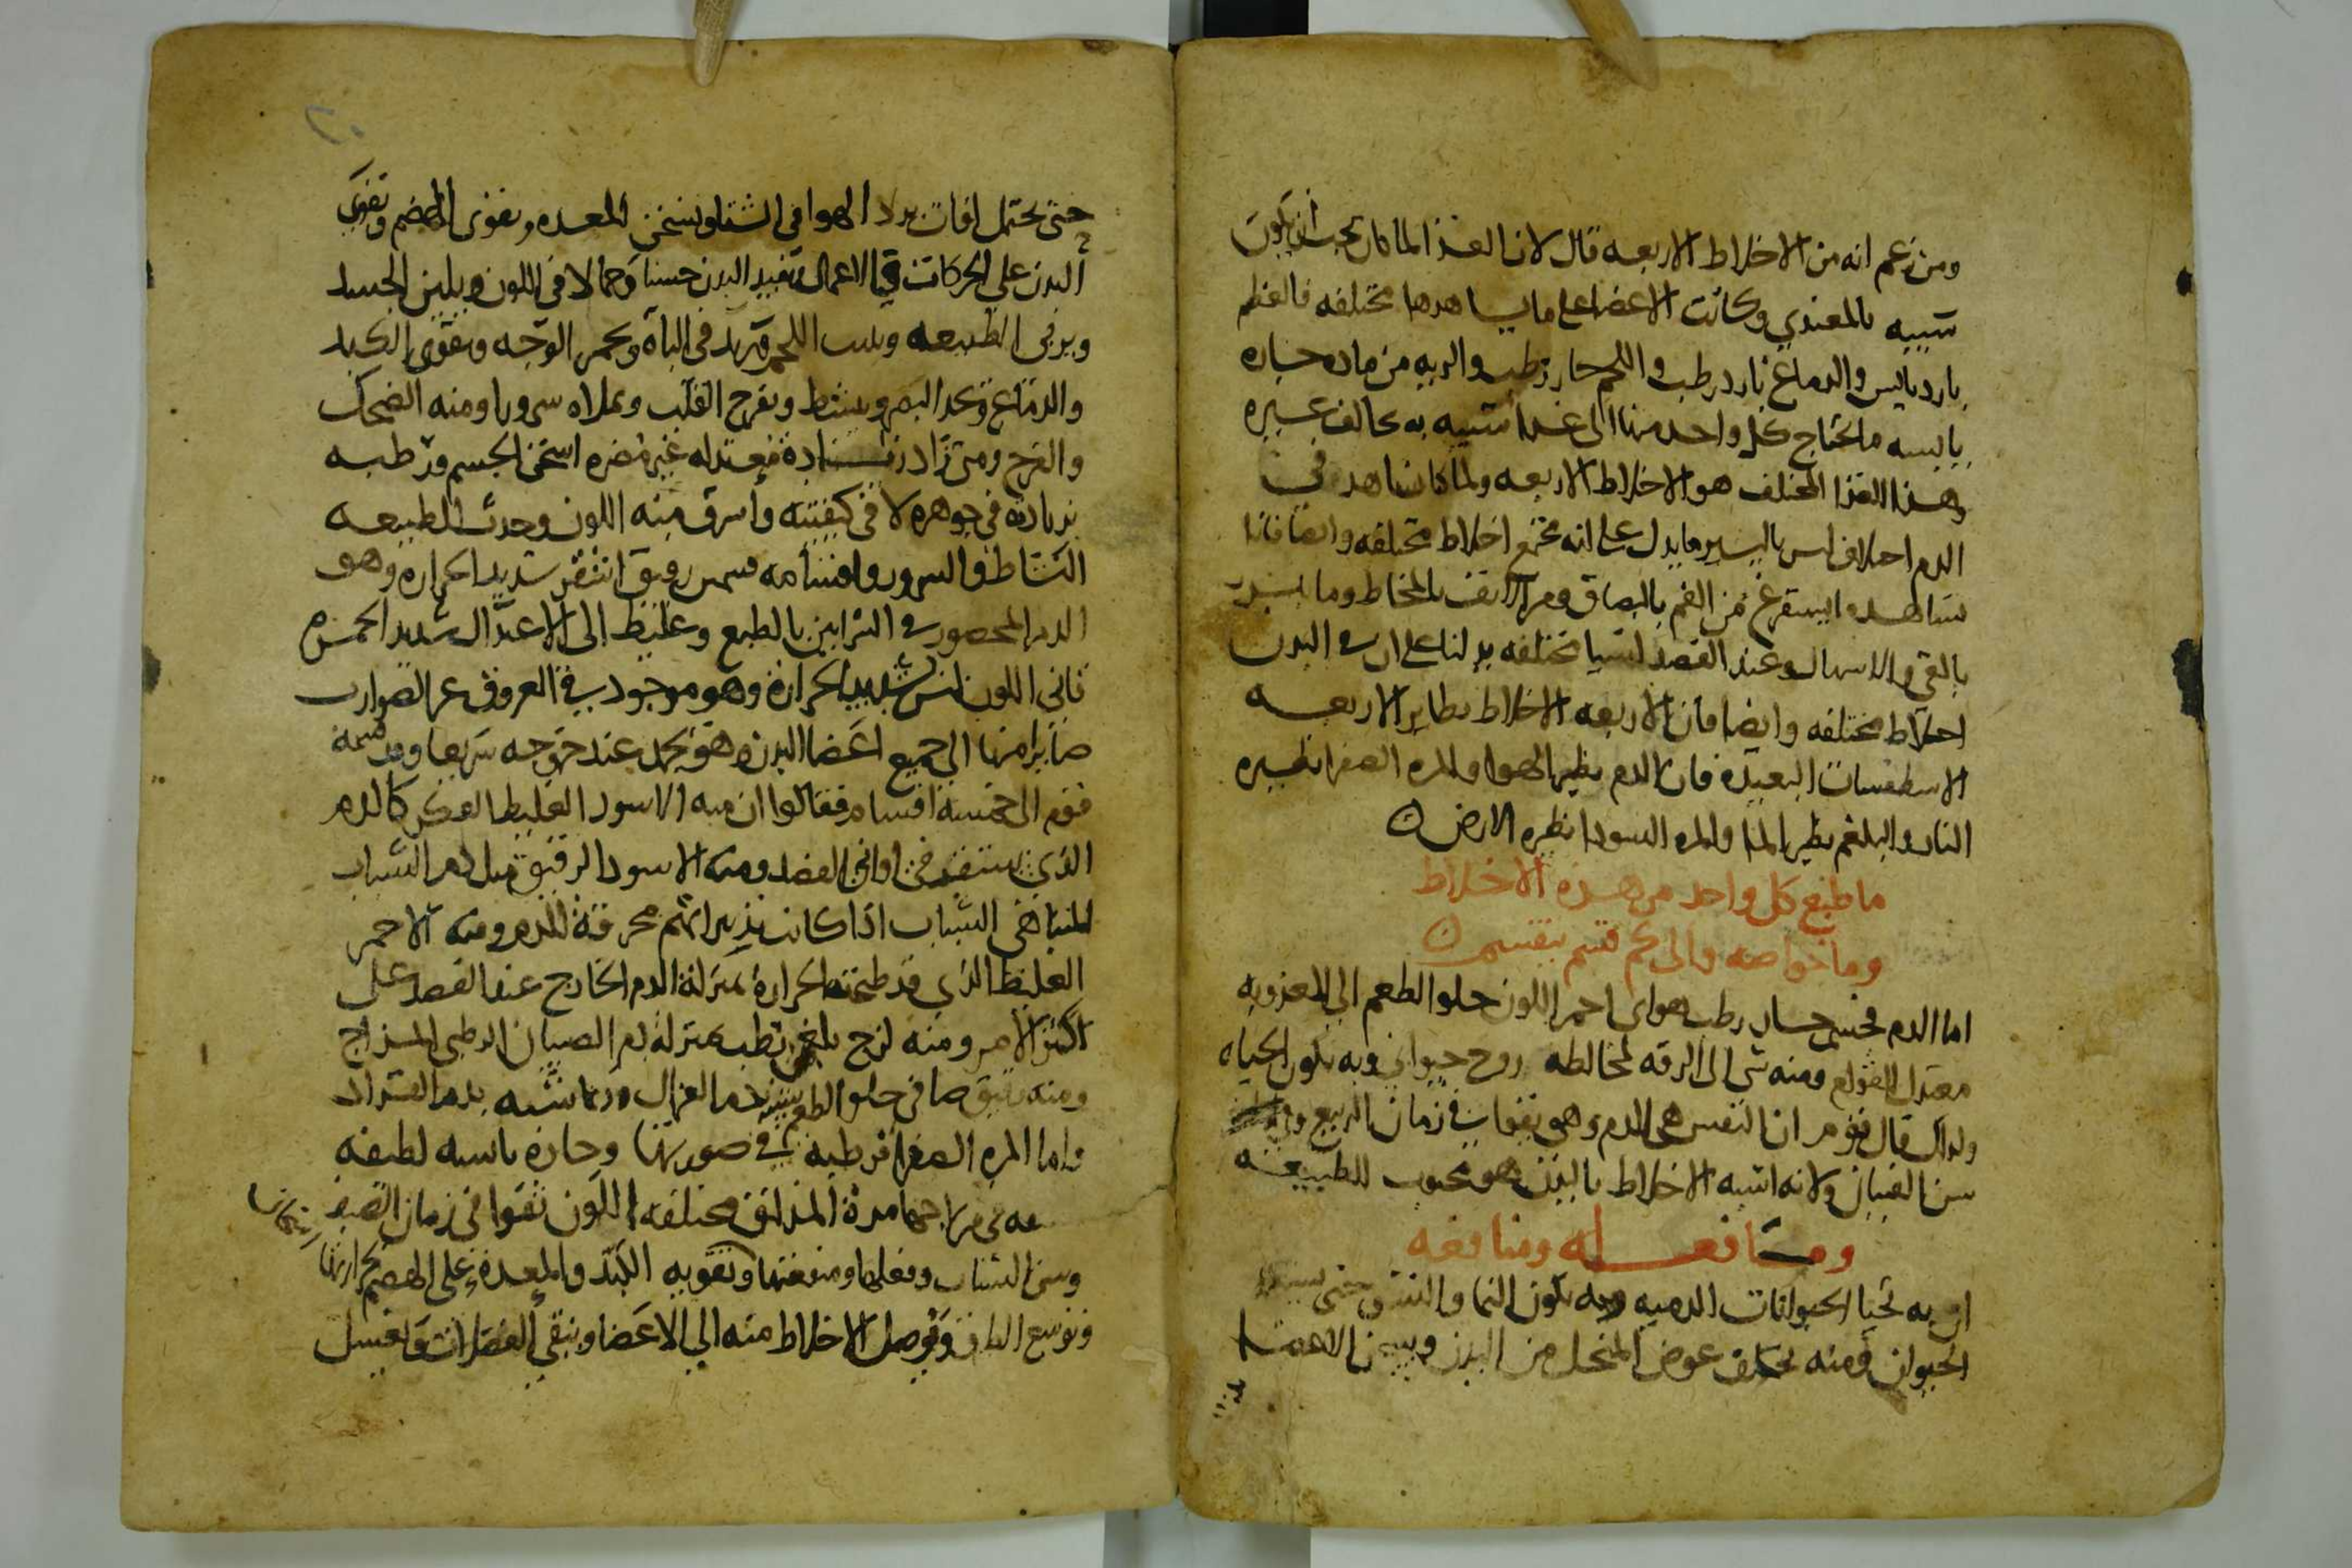 ومن زعم انه من الاخلاط الاربعه قال لان الغذا لما كان يجب ان يكون
شبيه بالمغتذي وكانت الاعضا على ما يشاهدها مختلفه فالعظم
بارد يابس والدماغ بارد رطب واللحم حار رطب والريه من ماده حاره
يابسه ما يحتاج كل واحد منها الى غذا شبيه به يخالف غيره
وهذا الغذا المختلف هو الاخلاط الاربعه ولما كان يشاهد في
الدم اختلاف ليس باليسير ما يدل على انه مجتمع اخلاط مختلفه وايضا فانا
نشاهد ما يستفرغ من الفم بالبصاق ومن الانف بالمخاط وما
بالقي والاسهال وعند الفصد اشيا مختلفه يدلنا على ان في البدن
اخلاط مختلفه وايضا فان الاربعه الاخلاط نظاير الاربعه
الاسطقسات البعيده فان الدم نظير الهوا والمره الصفرا نظيره
النار والبلغم نظير الما والمره السودا نظيره الارض
ما طبع كل واحد من هذه الاخلاط
وما خواصه والى كم قسم ينقسم
اما الدم فجسم حار رطب هواي احمر اللون حلو الطعم الى العذوبه
معتدل القوام ومنه شي الى الرقه لمخالطه روح حيواني وبه يكون الحياه
ولذلك قال قوم ان النفس هي الدم وهو يقوا في زمان الربيع وفي
سن الفتيان ولانه اشبه الاخلاط بالبدن هو محبوب للطبيعه
وما فعله ومنافعه
ان به تحيا الحيوانات الدميه وبه يكون النما والنشو حتى
الحيوان ومنه يخلف عوض المنحل من البدن ويسخن الاعضا
حتى يحتمل افات برد الهوا في الشتا ويسخن المعده ويقوى الهضم وتقوى
البدن على الحركات في الاعمال تفيد البدن حسنا وجمالا في اللون ويلين الجسد
ويرخى الطبيعه وينبت اللحم ويزيد في الباه ويحمر الوجه ويقوى الكبد
والدماغ ويحد البصر وينشط ويفرح القلب ويملاه سرورا ومنه الضحك
والفرح ومتى زاد زياده معتدله غير مضره اسخن الجسم ورطبه
بزيادته في جوهره لا في كيفيته واشرق منه اللون وحدث للطبيعه
النشاط والسرور واقسامه قسمين رقيق اشقر شديد الحراره وهو
الدم المحصور في الشرايين بالطبع وغليظ الى الاعتدال شديد الحمره
قاني اللون ليس شديد الحراره وهو موجود في العروق غير الضوارب
صايرا منها الى جميع اعضا البدن وهو يجمد عند خروجه سريعا وقد قسمه
قوم الى خمسة اقسام فقالوا ان منه الاسود الغليظ العكر كالدم
الذي يستقر في اواني الفصد ومنه الاسود الرقيق مثل دم الشباب
المتناهي الشباب اذا كانت تدبيراتهم محرقة للدم ومنه الاحمر
الغليظ الذي قد طبخته الحراره بمنزلة الدم الخارج عند الفصد على
اكثر الامر ومنه لزج بلغمي رطب بمنزلة دم الصبيان الرطبي المزاج
ومنه رقيق صافي حلو الطعم يشبه دم الغزال وربما شبه بدم القراد
واما المره الصفرا فرطبه في صورتها وحاره يابسه لطيفه
في مزاجها مرة المذاق مختلفه اللون تقوا في زمان الصيف
وسن الشباب وفعلها ومنفعتها وتقويه الكبد والمعدة على الهضم بحرارتها
وتوسع الطرق وتوصل الاخلاط منه الى الاعضا وينقي الفضلات وتغسل